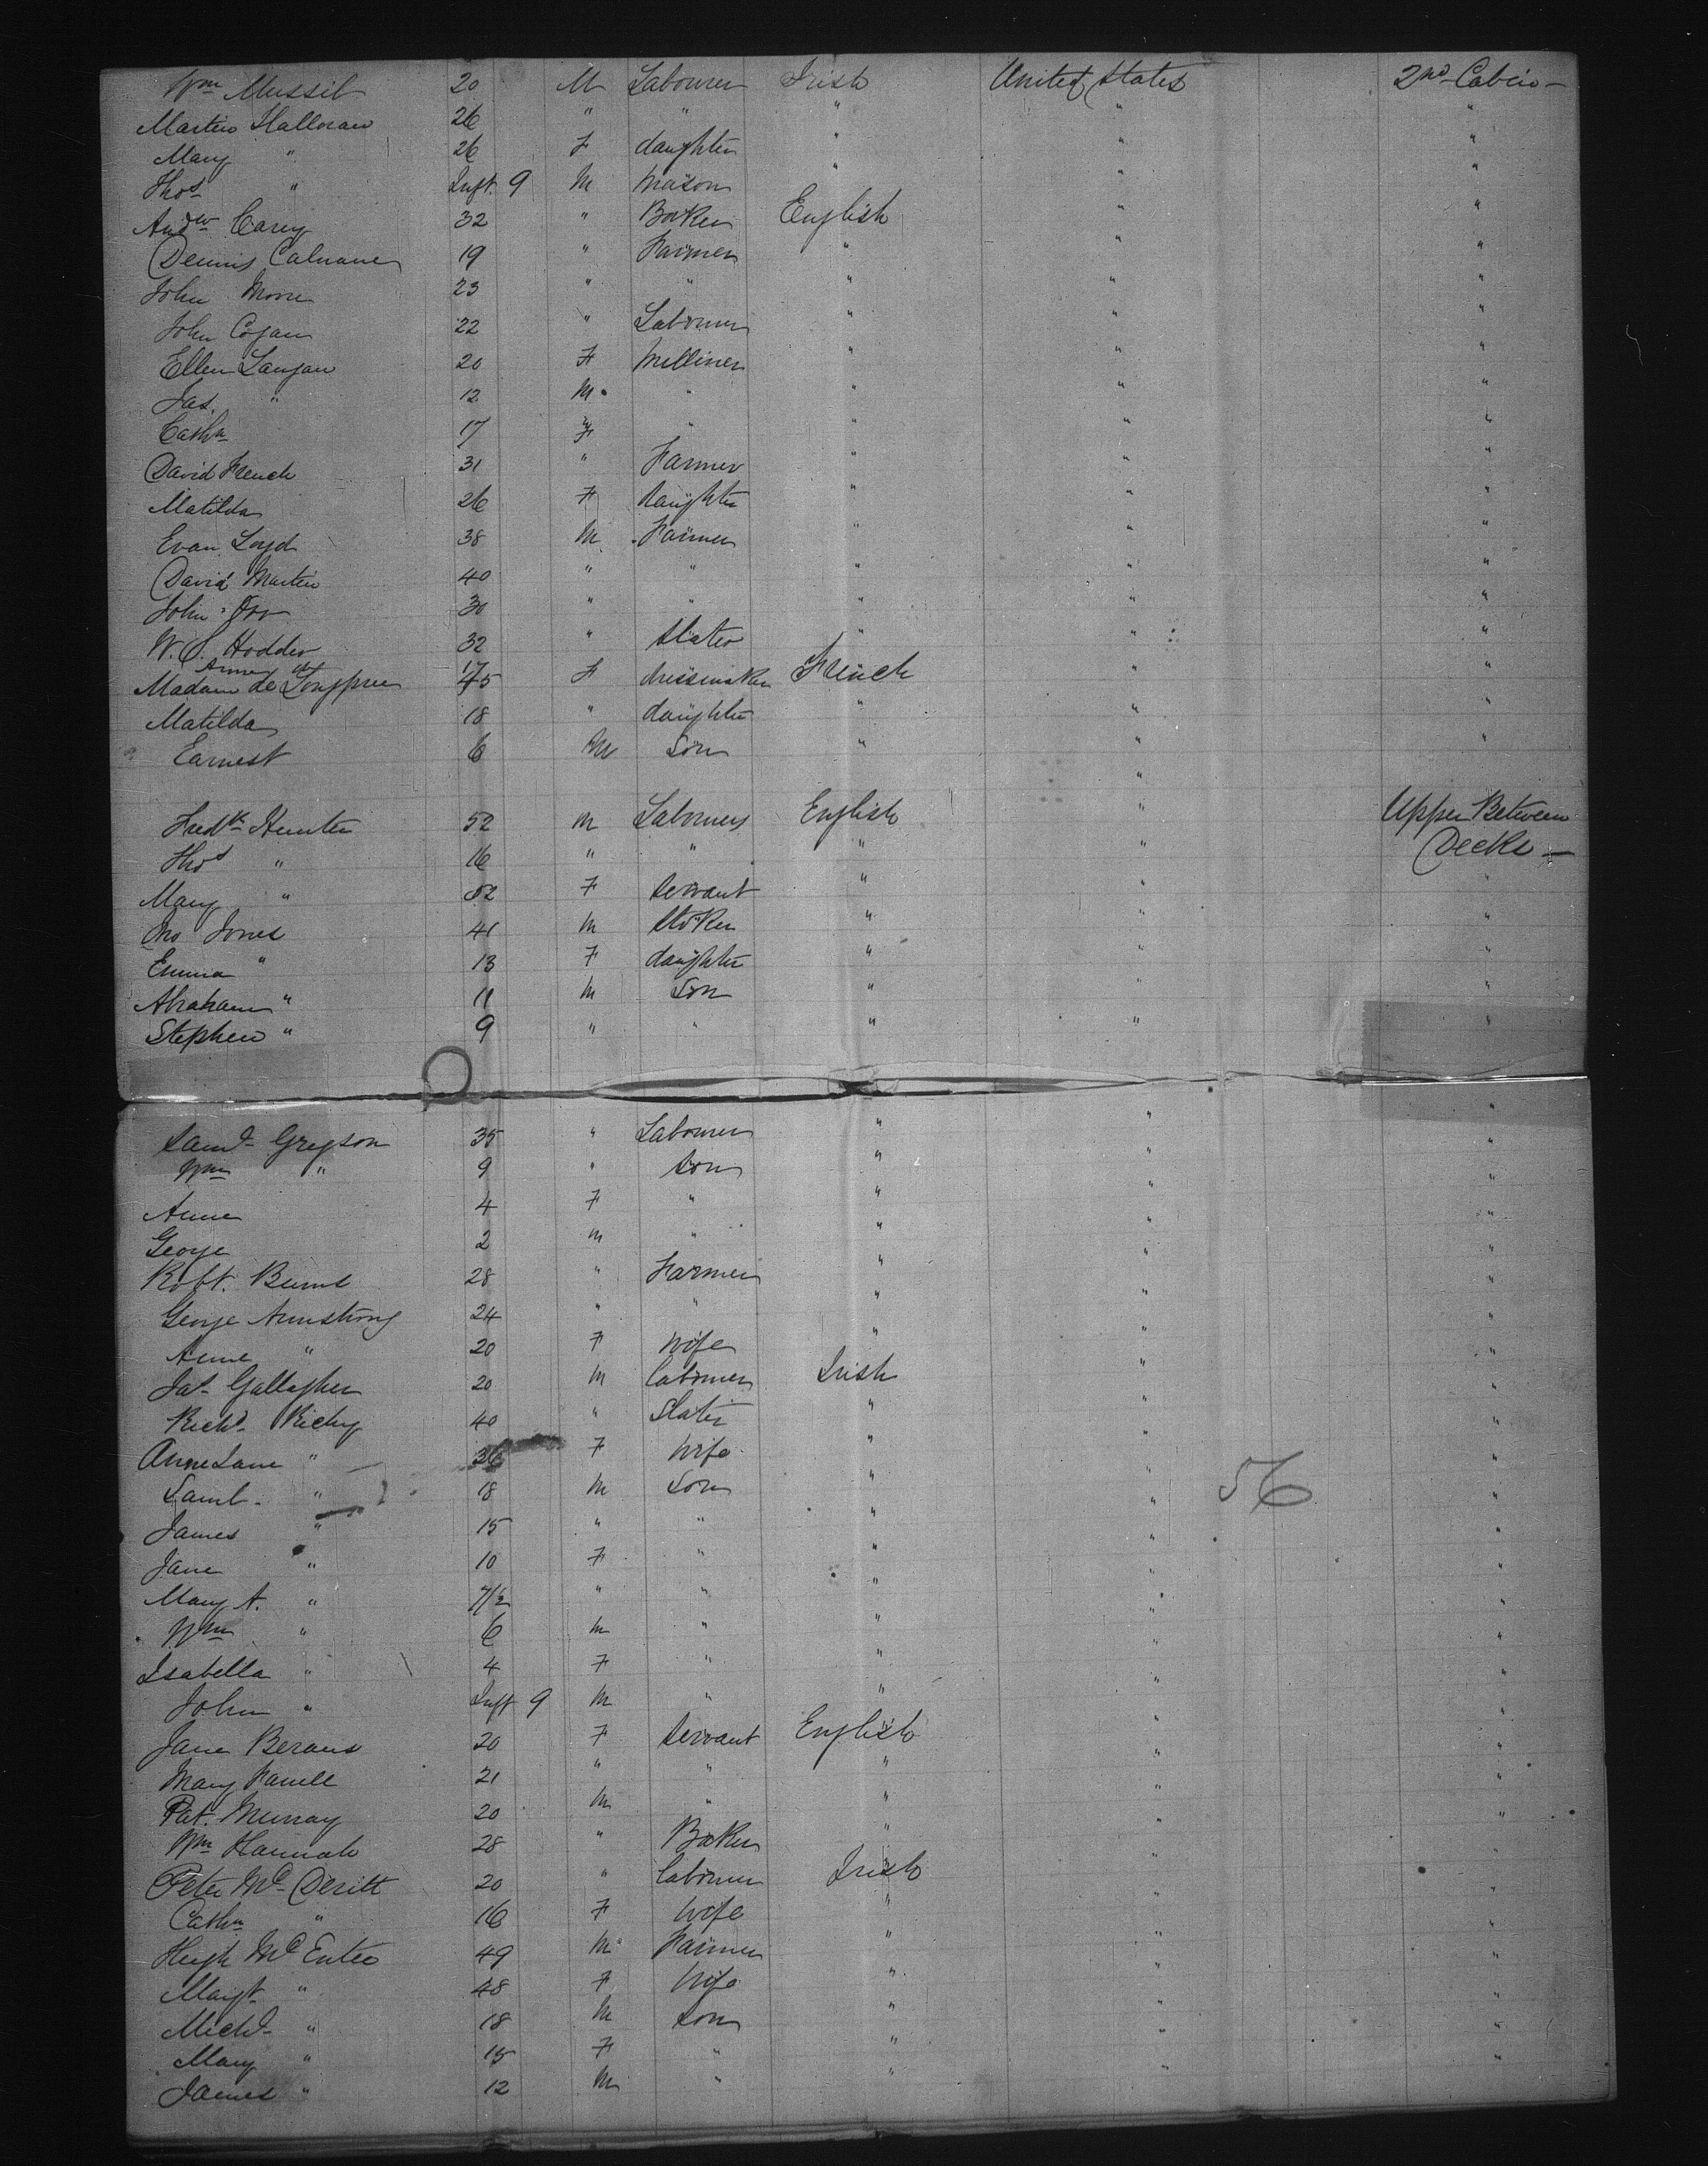 Wm Mussil 20 M Labourer Irish United States 2nd Cabin -
Martin Halloran 26 " " " " "
Mary " 26 F daughter " " "
Thos " Inft. 9 M Mason " " "
Andw Carey 32 " Baker English " "
Dennis Calnane 19 " Farmer " " "
John Moore 23 " " " " "
John Cogan 22 " Labourer " " "
Ellen Langan 20 F Milliner " " "
Jas. " 12 M " " " "
Cathn 17 F " " " "
David French 31 " Farmer " " "
Matilda 26 F daughter " " "
Evan Loyd 38 M Farmer " " "
David Martin 40 " " " " "
John Orr 30 " " " " "
W. S. Hodder 32 " Slater " " "
Madam de 45 F dressmaker French " "
Matilda 18 " daughter " " "
Earnest 6 M Son " " "
Fredk Hunter 52 M Labourers English " Upper Between
Thos " 16 " " " " Decks -
Mary " 52 F Servant " " "
Jno Jones 41 M Stoker " " "
Emma " 13 F daughter " " "
Abraham " 11 M Son " " "
Stephen " 9 " " " " "
Saml Gregson 35 " Labourer " " "
Wm " 9 " Son " " "
Anne 4 F " " " "
George 2 M " " " "
Robt. Burns 28 " Farmer " " "
George Armstrong 24 " " " " "
Anne " 20 F Wife " " "
Jas Gallagher 20 M Labourer Irish " "
Richd Richy 40 " Slater " " "
Anne Jane " 36 F Wife " " "
Saml. " 18 M Son " " 56 "
James " 15 " " " " "
Jane " 10 F " " " "
Mary A. " 7/2 " " " " "
Wm " 6 M " " " "
Isabella " 4 F " " " "
John " Inft 9 M " " " "
Jane Berans 20 F Servant English " "
Mary Farrell 21 " " " " "
Pat. Murray 20 M " " " "
Wm Hannah 28 " Baker " " "
Peter McDeritt 20 " Labourer Irish " "
Cathn " 16 F Wife " " "
Hugh McEntee 49 M Farmer " " "
Margt " 48 F Wife " " "
Michl " 18 M Son " " "
Mary " 15 F " " " "
James " 12 M " "